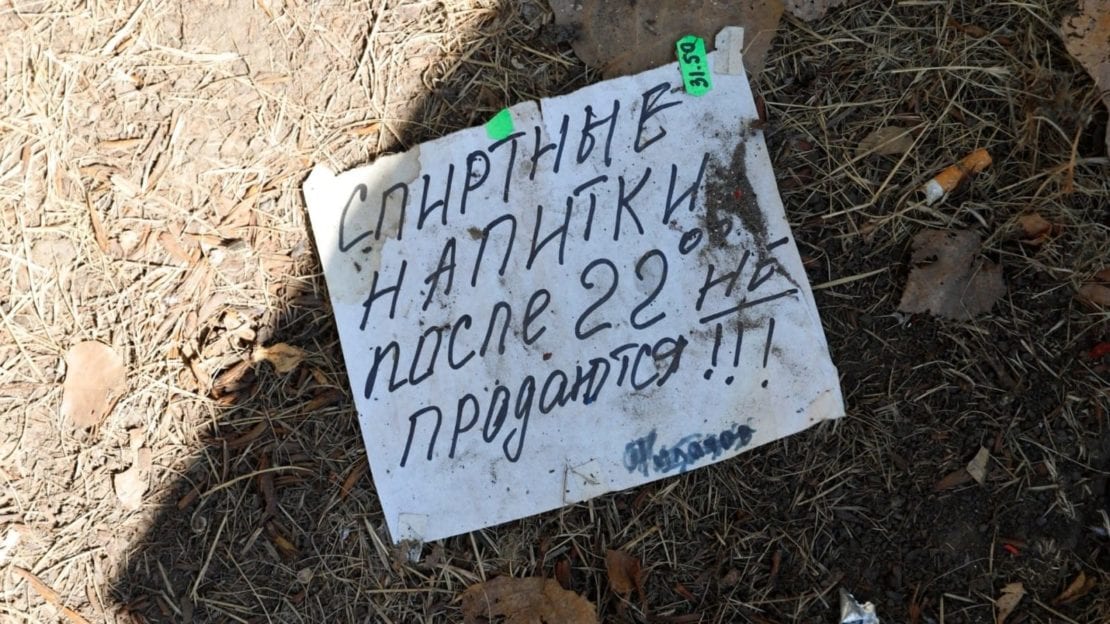 31.50
СПИРТНЫЕ
НАПИТКИ
после 22⁰⁰ НЕ
продаются!!!